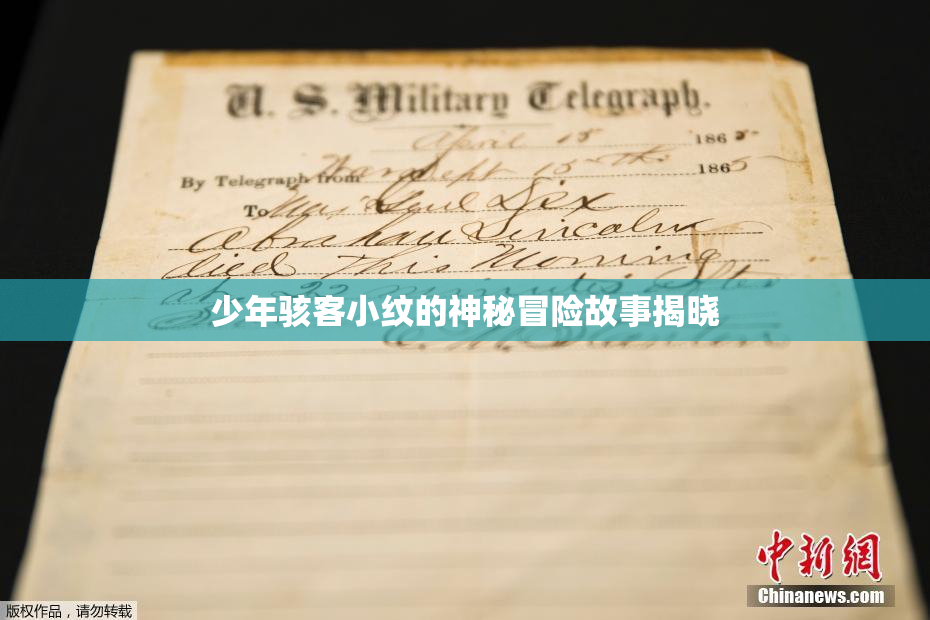 U. S. Military Telegraph.
April 15 1865
By Telegraph from War Dept 15th 1865
To Maj Genl Dix
Abraham Lincoln
died This Morning
at 22 minutes after
少年骇客小纹的神秘冒险故事揭晓
E. M. Stanton
中新网
Chinanews.com
版权作品，请勿转载